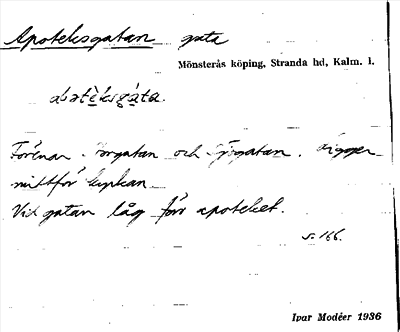 Apoteksgatan gata
Mönsterås köping, Stranda hd, Kalm. l.
Förenar Torgatan och Sjögatan. Ligger
mittför kyrkan
Vid gatan låg förr apoteket.
s. 166.
Ivar Modéer 1936